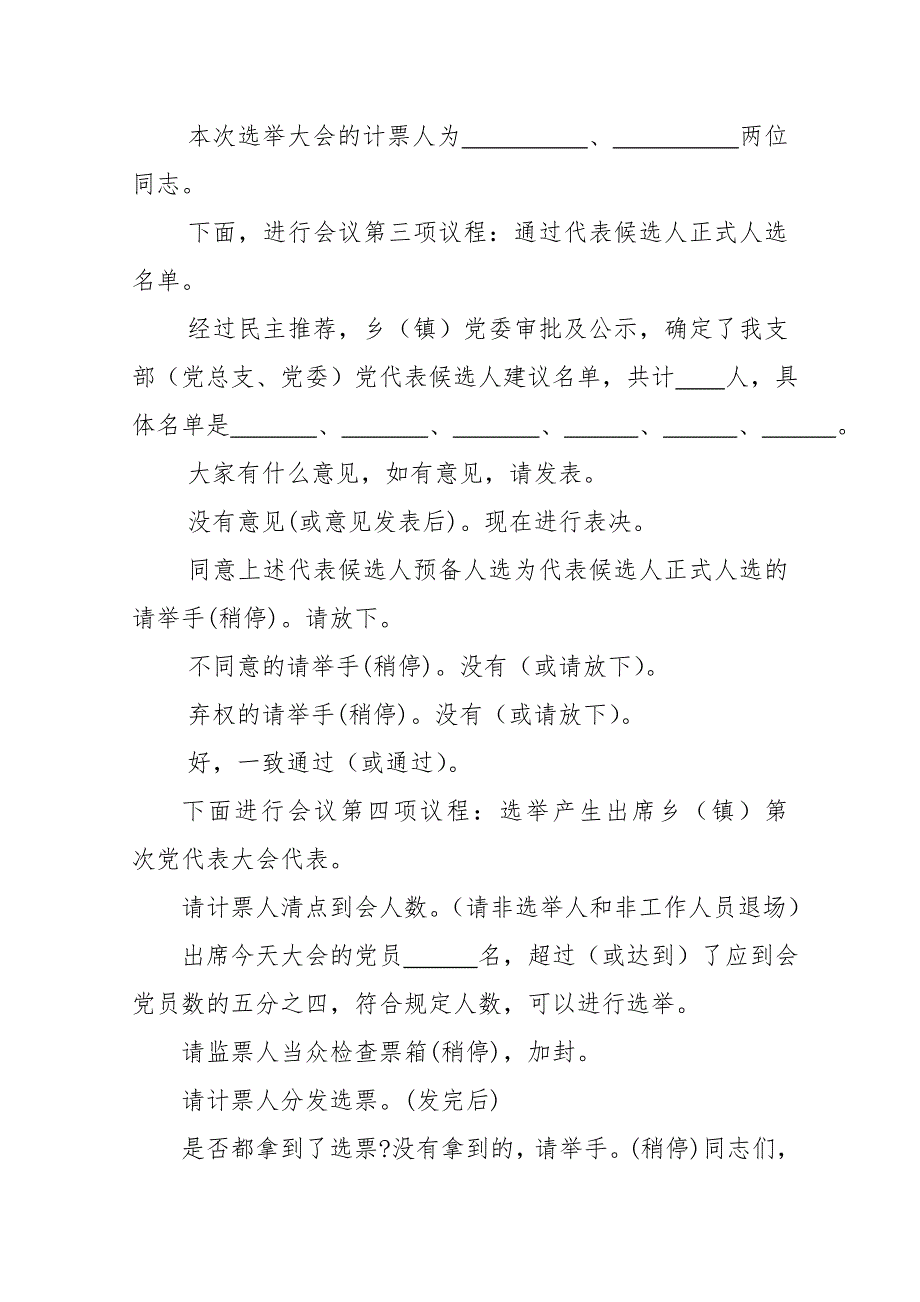 本次选举大会的计票人为__________、__________两位
同志。
下面，进行会议第三项议程：通过代表候选人正式人选
名单。
经过民主推荐，乡（镇）党委审批及公示，确定了我支
部（党总支、党委）党代表候选人建议名单，共计____人，具
体名单是_______、_______、_______、______、______、______。
大家有什么意见，如有意见，请发表。
没有意见(或意见发表后)。现在进行表决。
同意上述代表候选人预备人选为代表候选人正式人选的
请举手(稍停)。请放下。
不同意的请举手(稍停)。没有（或请放下）。
弃权的请举手(稍停)。没有（或请放下）。
好，一致通过（或通过）。
下面进行会议第四项议程：选举产生出席乡（镇）第
次党代表大会代表。
请计票人清点到会人数。（请非选举人和非工作人员退场）
出席今天大会的党员______名，超过（或达到）了应到会
党员数的五分之四，符合规定人数，可以进行选举。
请监票人当众检查票箱(稍停)，加封。
请计票人分发选票。(发完后)
是否都拿到了选票?没有拿到的，请举手。(稍停)同志们，